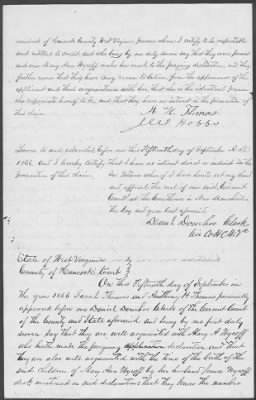 resident of Hancock County West Virginia persons whom I certify to be respectable
and entitled to credit who being by me duly sworn say that they were present
and saw Mary Ann Wycoff make her mark to the foregoing declaration and they
further swear that they have every reason to believe from the appearance of the
applicant and their acquaintance with her that she is the identical person
she represents herself to be, and that they have no interest in the prosecution of
this claim.
A. H. Thomas
Hobbs
Sworn to and subscribed before me this Fifteenth day of September A.D.
1866 And I hereby certify that I have no interest direct or indirect in the
prosecution of this claim. In testimony whereof I have hereto set my hand
and official the seal of our said Circuit
Court at the Court house in New Cumberland
the day and year first aforesaid
Daniel Donehoo Clerk
Cir Ct H C W Va
State of West Virginia
County of Hancock Court
On this Fifteenth day of September in
the year 1866 Sarah Thomas and Anthony H Thomas personally
appeared before me Daniel Donehoo Clerk of the Circuit Court
of the County and State aforesaid and being by me first duly
sworn say that they are well acquainted with Mary A. Wycoff
who hath made the foregoing declaration and that
they are also well acquainted with the time of the birth of the
said children of Mary Ann Wycoff by her husband Wycoff
decd mentioned in said declaration that they know the number